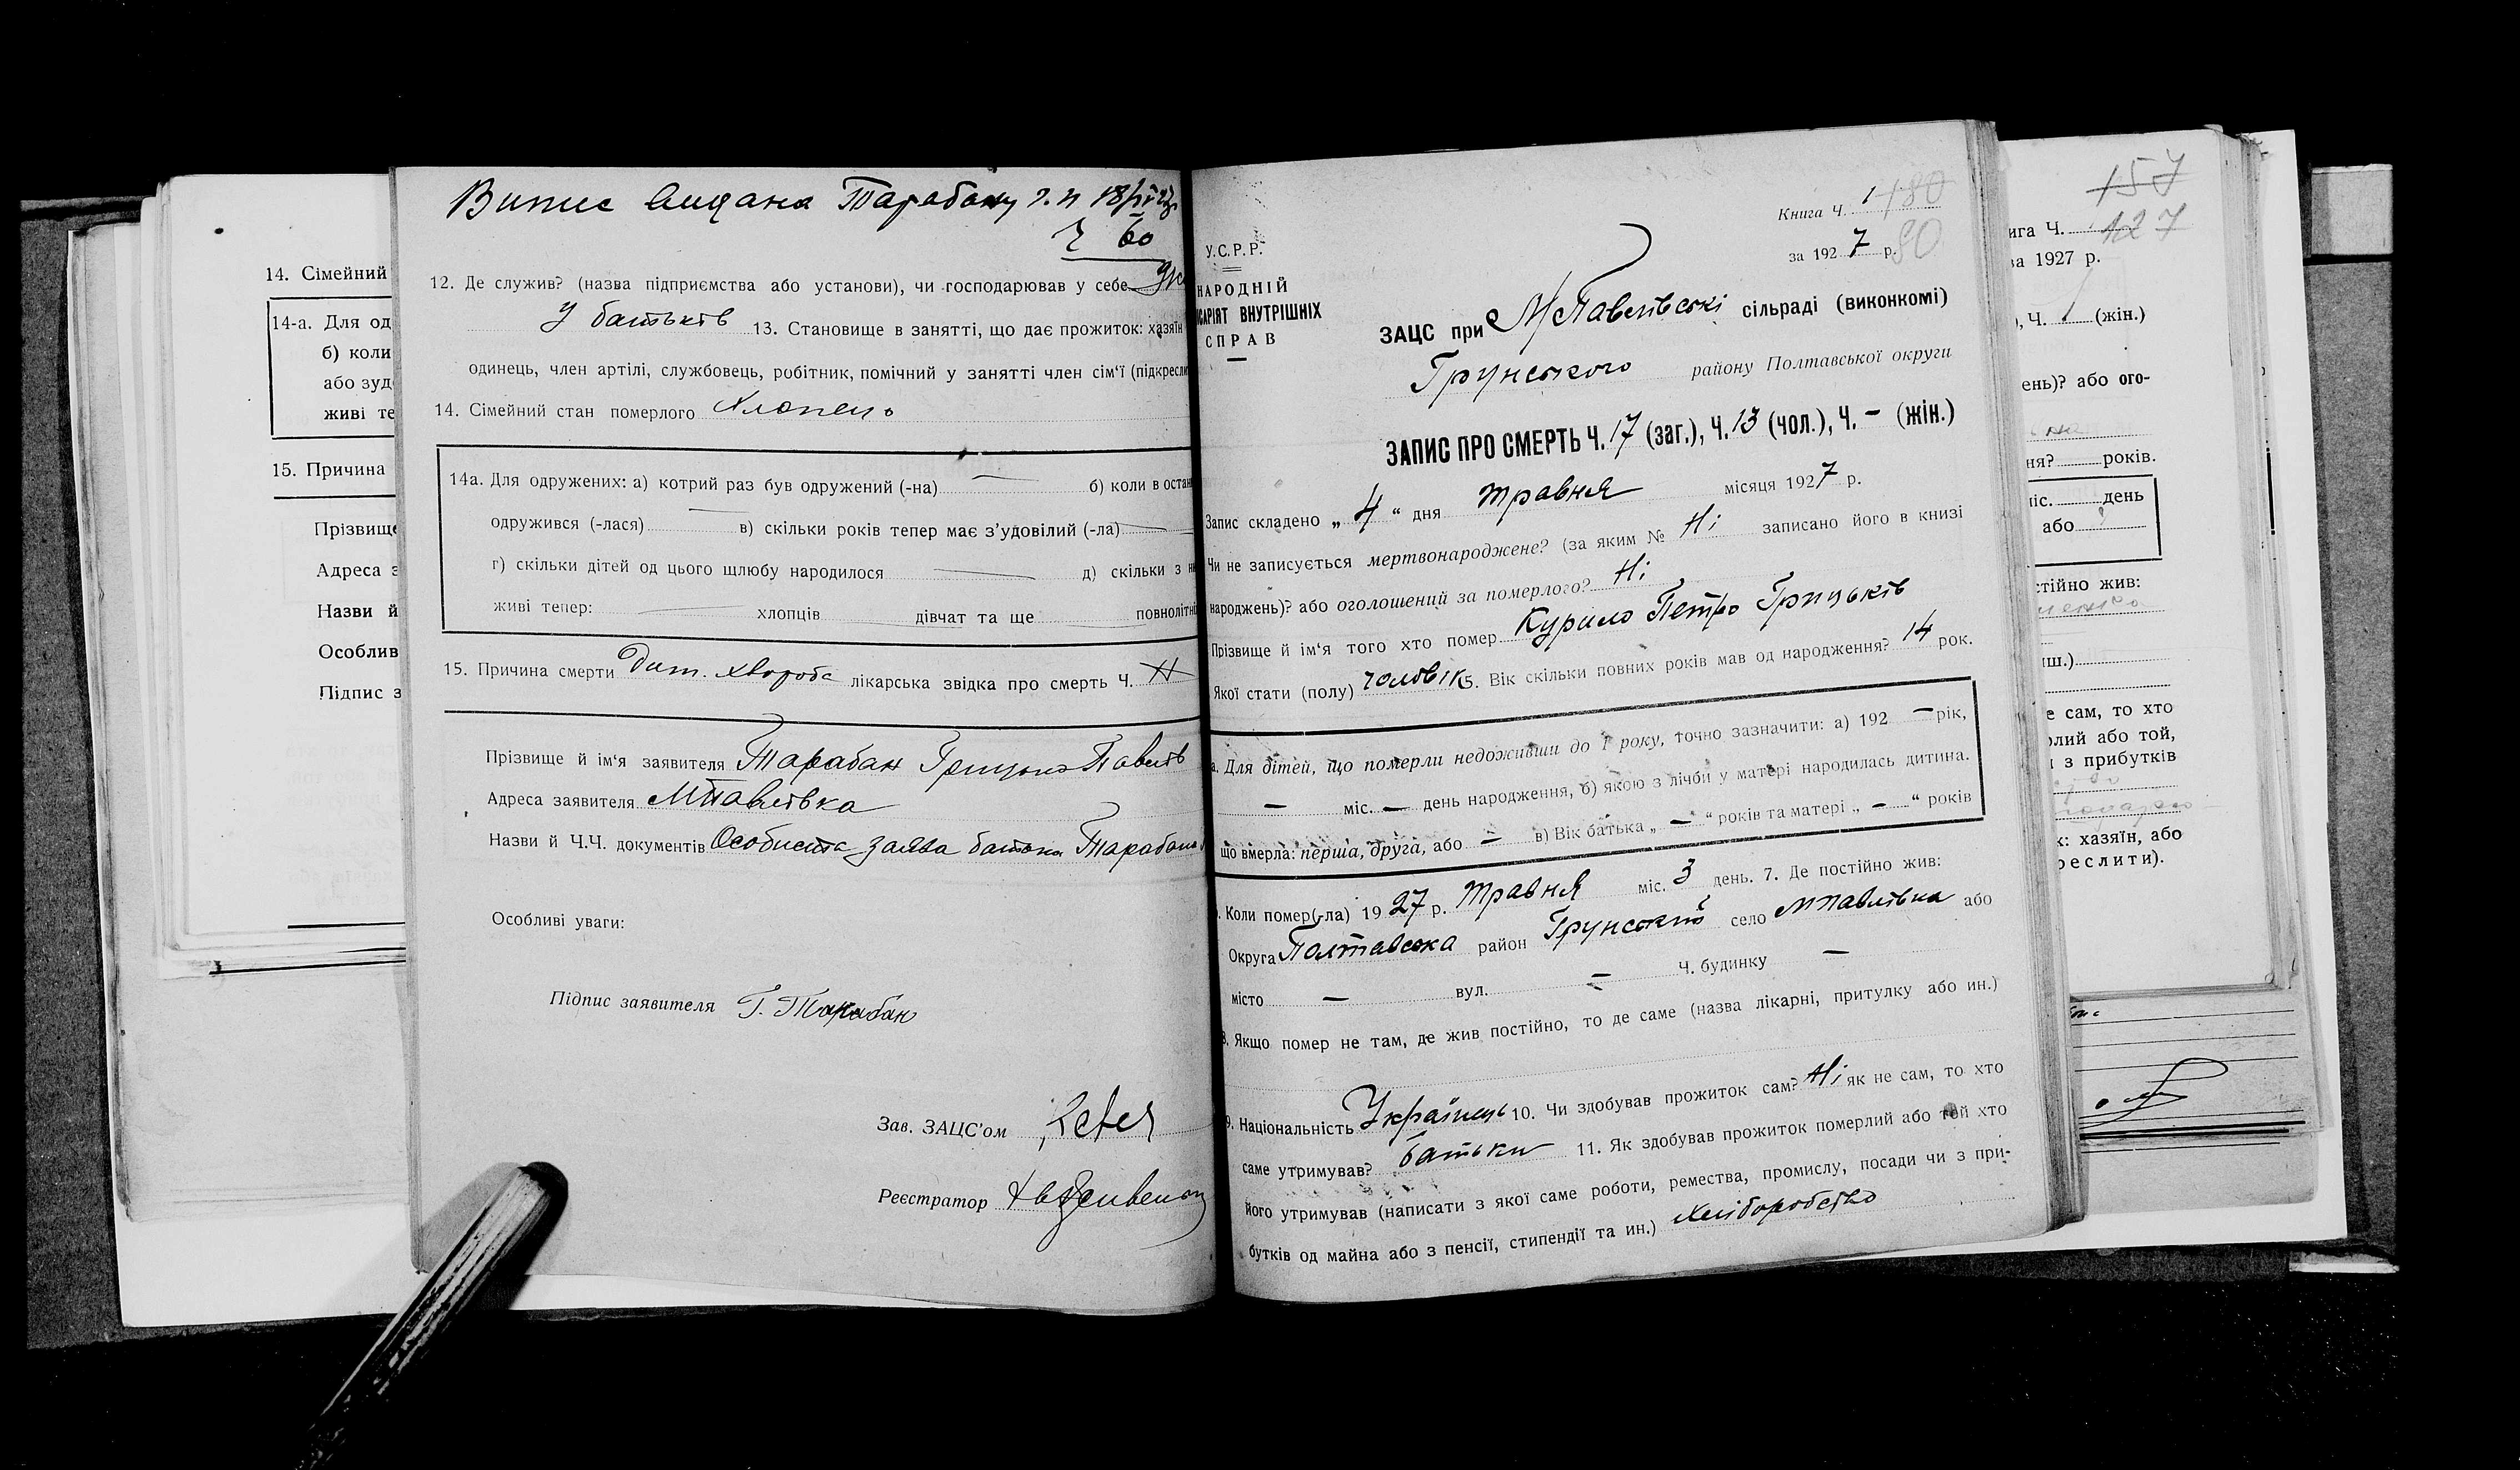 14. Сімейний
14-а. Для од
б) коли
або зуд
живі те
15. Причина
Прізвище
Адреса з
Назви й
Особлив
Підпис з
Випис видана Тарабану Г. П 18/IV
60
12. Де служив? (назва підприємства або установи), чи господарював у себе
У батьків 13. Становище в занятті, що дає прожиток: хазяїн
одинець, член артілі, службовець, робітник, помічний у занятті член сім'ї (підкресли
14. Сімейний стан померлого Хлопець
14а. Для одружених: а) котрий раз був одружений (-на) — б) коли в остан
одружився (-лася) — в) скільки років тепер має з'удовілий (-ла) —
г) скільки дітей од цього шлюбу народилося — д) скільки з н
живі тепер: — хлопців дівчат та ще повнолітні
15. Причина смерти Дит. хвороба лікарська звідка про смерть Ч.
Прізвище й ім'я заявителя Тарабан Грицько Павлів
Адреса заявителя МПавлівка
Назви й Ч.Ч. документів Особиста заява батька Тарабана
Особливі уваги:
Підпис заявителя Г. Тарабан
Зав. ЗАЦС'ом
Реєстратор
Книга Ч. 1 180
за 1927 р. 90
У.С.Р.Р.
НАРОДНІЙ
САРІЯТ ВНУТРІШНІХ
СПРАВ
ЗАЦС при МПавлівські сільраді (виконкомі)
Грунського району Полтавської округи
ЗАПИС ПРО СМЕРТЬ Ч. 17 (заг.), Ч. 13 (чол.), Ч. — (жін.)
Запис складено „ 4 “ дня травня місяця 1927 р.
Чи не записується мертвонароджене? (за яким № Ні записано його в книзі
народжень)? або оголошений за померлого? Ні
Прізвище й ім'я того хто помер Курило Петро Грицьків
Якої стати (полу) чоловік 5. Вік скільки повних років мав од народження? 14 рок.
а. Для дітей, що померли недоживши до 1 року, точно зазначити: а) 192 — рік,
— міс. — день народження, б) якою з лічби у матері народилась дитина.
що вмерла: перша, друга, або — в) Вік батька „ — “ років та матері „ — “ років
Коли помер(-ла) 1927 р. травня міс. 3 день. 7. Де постійно жив:
Округа Полтавська район Грунський село МПавлівка або
місто — вул. — Ч. будинку —
8. Якщо помер не там, де жив постійно, то де саме (назва лікарні, притулку або ин.)
9. Національність Українець 10. Чи здобував прожиток сам? Ні як не сам, то хто
саме утримував? батьки 11. Як здобував прожиток померлий або той хто
його утримував (написати з якої саме роботи, ремества, промислу, посади чи з при-
бутків од майна або з пенсії, стипендії та ин.) Хліборобство
157
ига Ч. 127
за 1927 р.
), Ч. (жін.)
ень)? або ого-
ня? років.
міс. день
або
стійно жив:
иш.)
е сам, то хто
олий або той,
з прибутків
к: хазяїн, або
реслити).